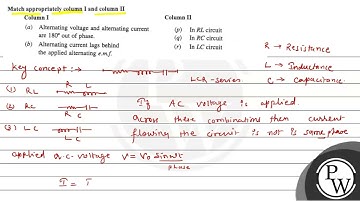 Match appropriately column I and column II
Column I
Column II
(a) Alternating voltage and alternating current are 180° out of phase.
(b) Alternating current lags behind the applied alternating e.m.f.
(p) In RL circuit
(q) In RC circuit
(r) In LC circuit
R → Resistance
L → Inductance
C → Capacitance.
Key concept :-
LCR-series
R L
(1) RL
(2) RC
R C
(3) LC
L C
If AC voltage is applied.
across these combinations then current
flowing the circuit is not is same phase
applied a.c. voltage V = V₀ sinωt
phase
I = I
PW